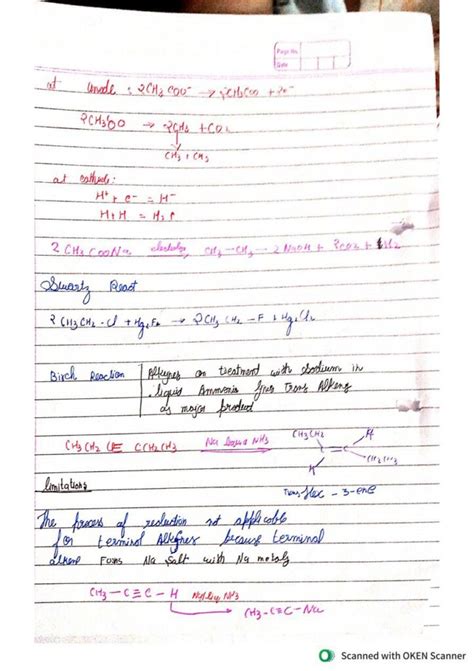 Page No.
Date
at Anode : 2CH3 COO⁻ → 2CH3COO + 2e⁻
2CH3COO → 2CH3 + CO2
CH3 + CH3
at cathode:
H⁺ + e⁻ = H⁻
H + H = H2
2 CH3 COONa electrolysis CH3 - CH3 → 2 NaOH + 2CO2 + H2
Swartz React
2 CH3CH2 - Cl + Hg2F2 → 2CH3 CH2 - F + Hg2Cl2
Birch Reaction Alkynes on treatment with Sodium in
liquid Ammonia gives Trans Alkene
as major product
CH3CH2 C≡ CCH2CH3 Na liquid NH3
CH3CH2 H
C=C
H CH2CH3
Trans-Hex - 3-ene
limitations
The process of reduction not applicable
for terminal Alkynes because terminal
alkene Foms Na Salt with Na metals
CH3 - C≡C - H Na/liq NH3
CH3-C≡C-Na
Scanned with OKEN Scanner